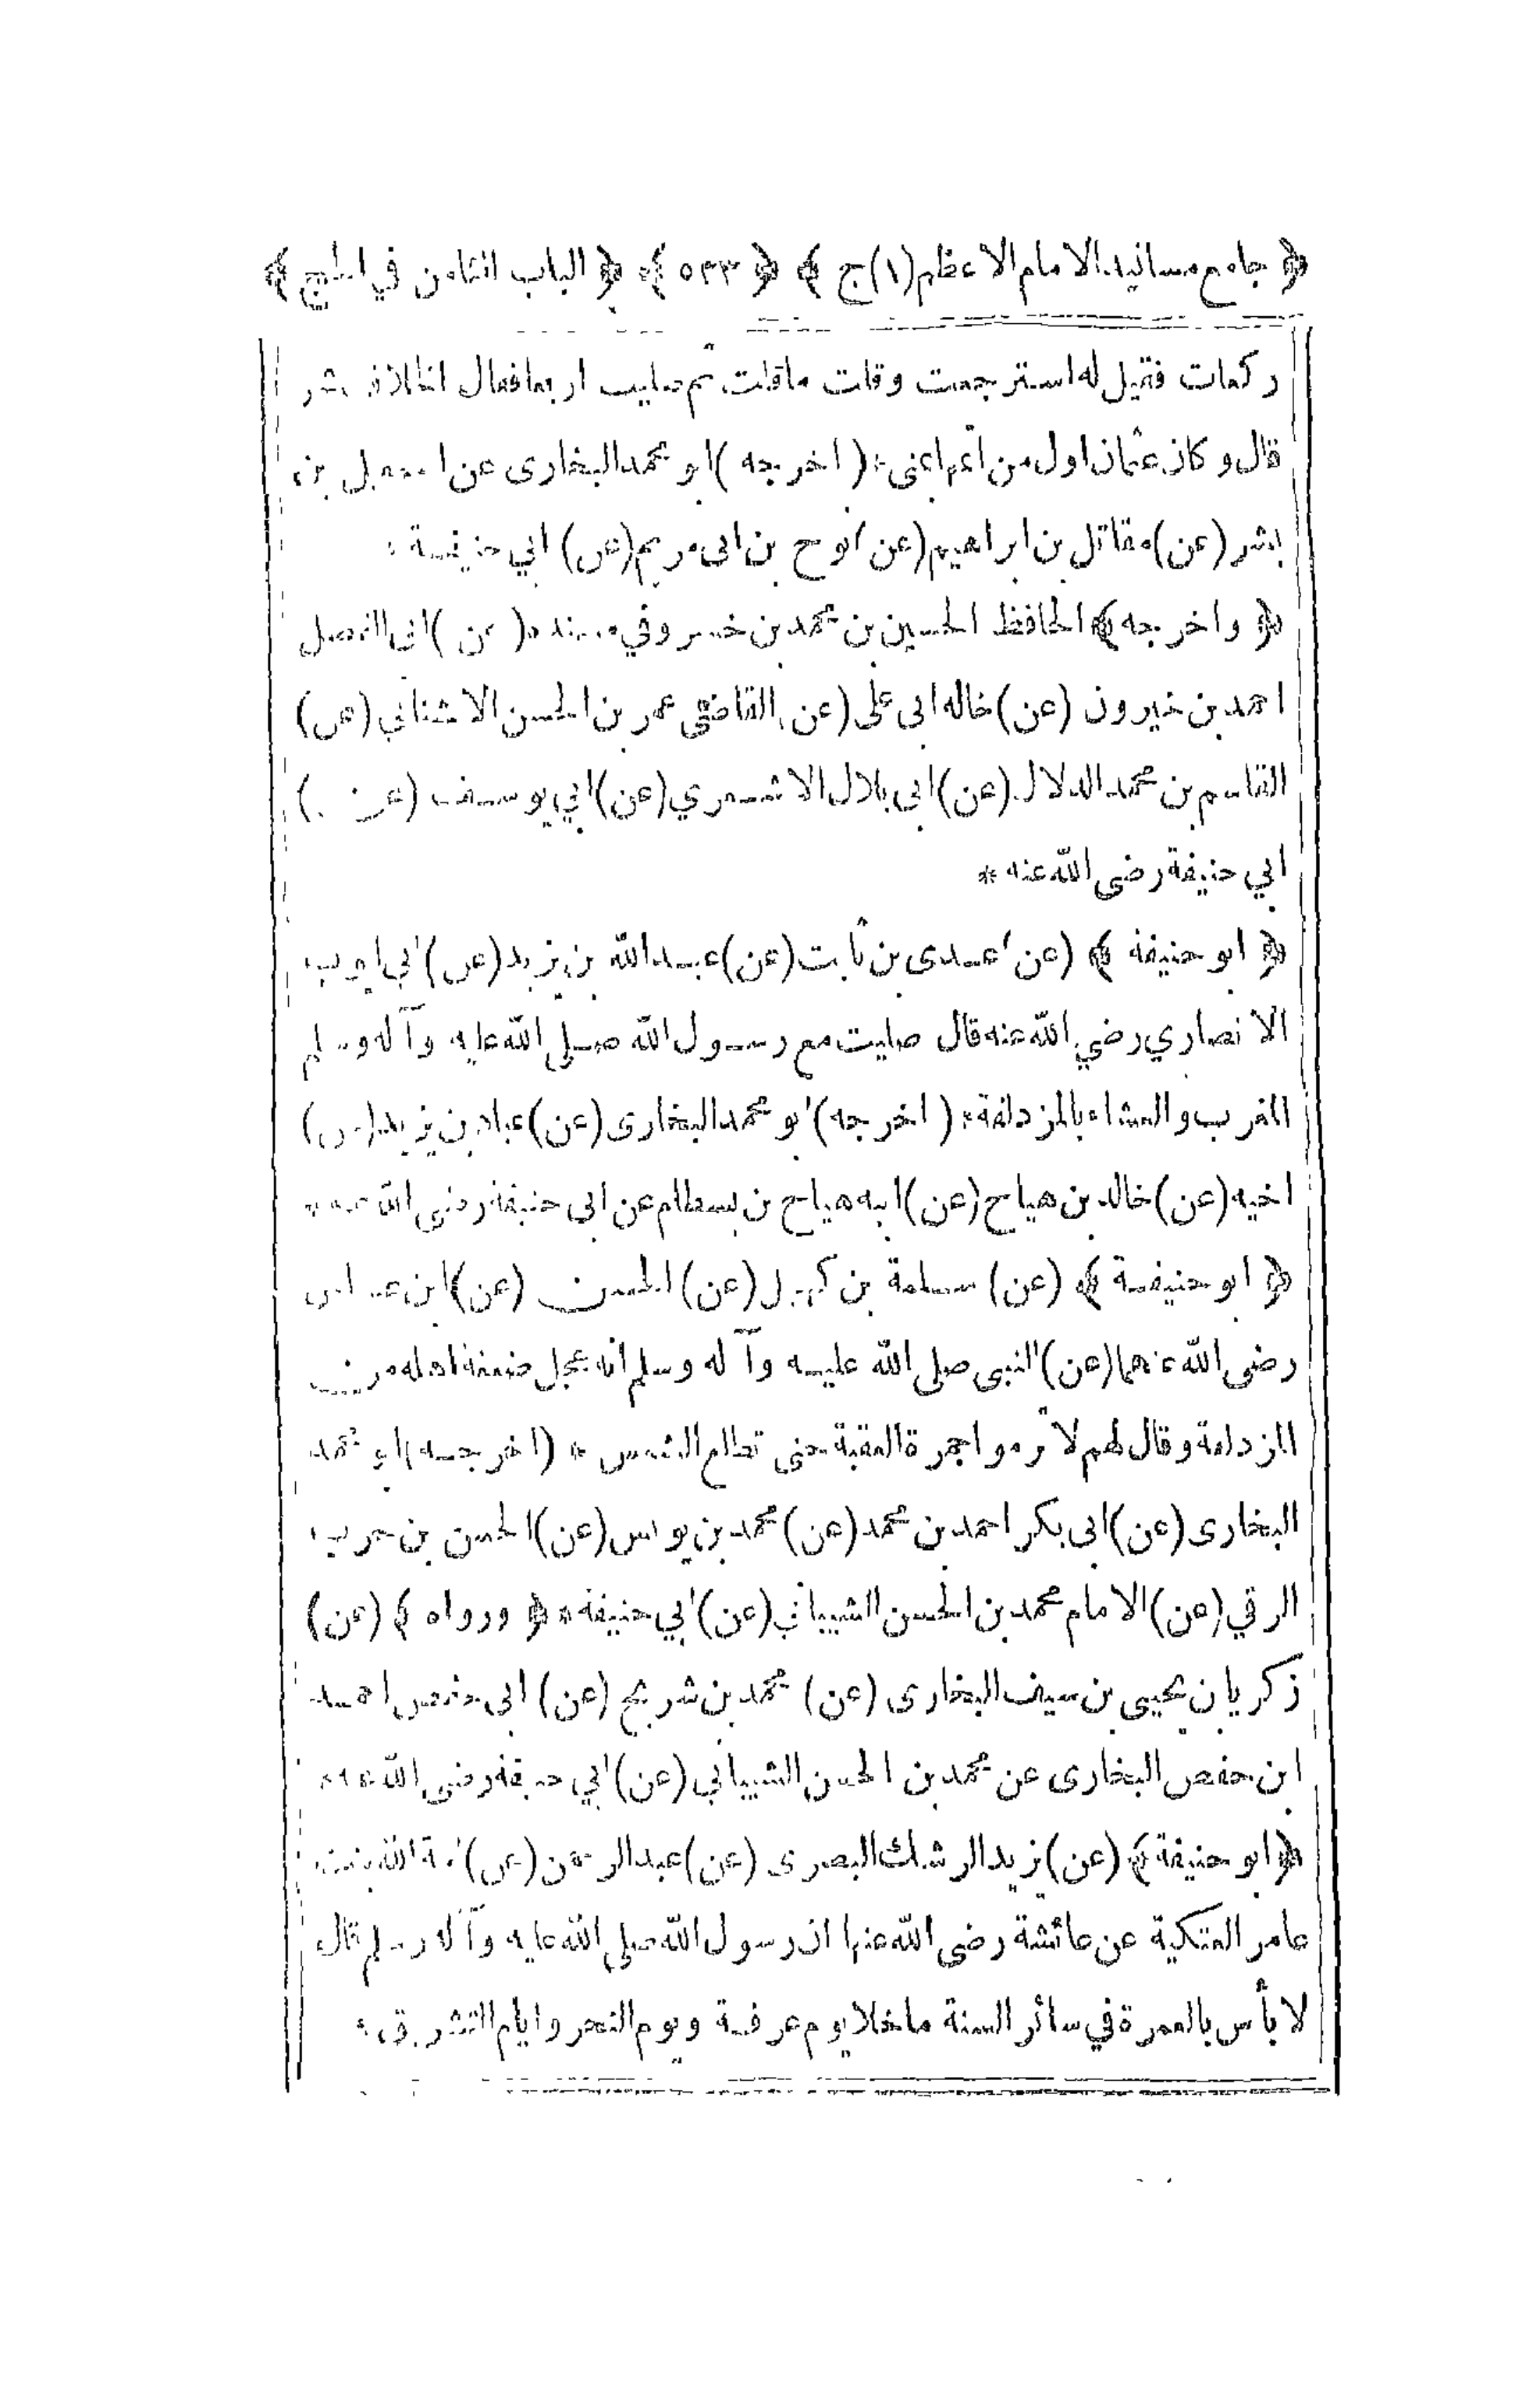 ﴿ جامع مسانيد الامام الاعظم(١)ج ﴾ ﴿ ٥٣٣ ﴾ ﴿ الباب الثامن في الحج ﴾
ركعات فقيل له استرجعت وقلت ماقلت ثم صليت اربعا فقال الخلاف شر
قال وكان عثمان اول من اتمها بمنى * ( اخرجه )ابو محمد البخارى عن اسمعيل بن
بشر (عن)مقاتل بن ابراهيم(عن)نوح بن ابى مريم(عن) ابي حنيفة *
﴿ واخرجه﴾الحافظ الحسين بن محمد بن خسرو في مسنده( عن )ابى الفضل
احمد بن خيرون (عن)خاله ابى على(عن)القاضى عمر بن الحسن الاشناني(عن)
القاسم بن محمد الدلال(عن)ابى بلال الاشعري(عن)ابي يوسف (عن )
ابي حنيفة رضى الله عنه *
﴿ ابو حنيفة ﴾ (عن)عدى بن ثابت(عن)عبد الله بن يزيد(عن)ابي ايوب
الانصاري رضي الله عنه قال صليت مع رسول الله صلى الله عليه وآله وسلم
المغرب والعشاء بالمزدلفة* ( اخرجه)ابو محمد البخارى(عن)عباد بن يزيد(عن)
اخيه(عن)خالد بن هياج(عن)ابيه هياج بن بسطام عن ابى حنيفة رضى الله عنه *
﴿ ابو حنيفة ﴾ (عن) سلمة بن كهيل(عن)الحسن (عن)ابن عباس
رضى الله عنهما(عن)النبى صلى الله عليه وآله وسلم انه عجل ضعفة اهله من
المزدلفة وقال لهم لا ترموا جمرة العقبة حتى تطلع الشمس * (اخرجه)ابو محمد
البخارى(عن)ابى بكر احمد بن محمد(عن)محمد بن يونس(عن)الحسن بن حرب
الرقي(عن)الامام محمد بن الحسن الشيباني(عن)ابي حنيفة*﴿ ورواه ﴾ (عن)
زكريا بن يحيى بن سيف البخارى (عن) محمد بن شريح (عن) ابى حفص احمد
ابن حفص البخارى عن محمد بن الحسن الشيباني(عن)ابي حنيفة رضى الله عنه*
﴿ابو حنيفة﴾ (عن)يزيد الرشك البصرى (عن)عبد الرحمن(عن) الله بنت
عامر العتكية عن عائشة رضى الله عنها ان رسول الله صلى الله عليه وآله وسلم قال
لا بأس بالعمرة في سائر السنة ماخلا يوم عرفة ويوم النحر وايام التشريق*